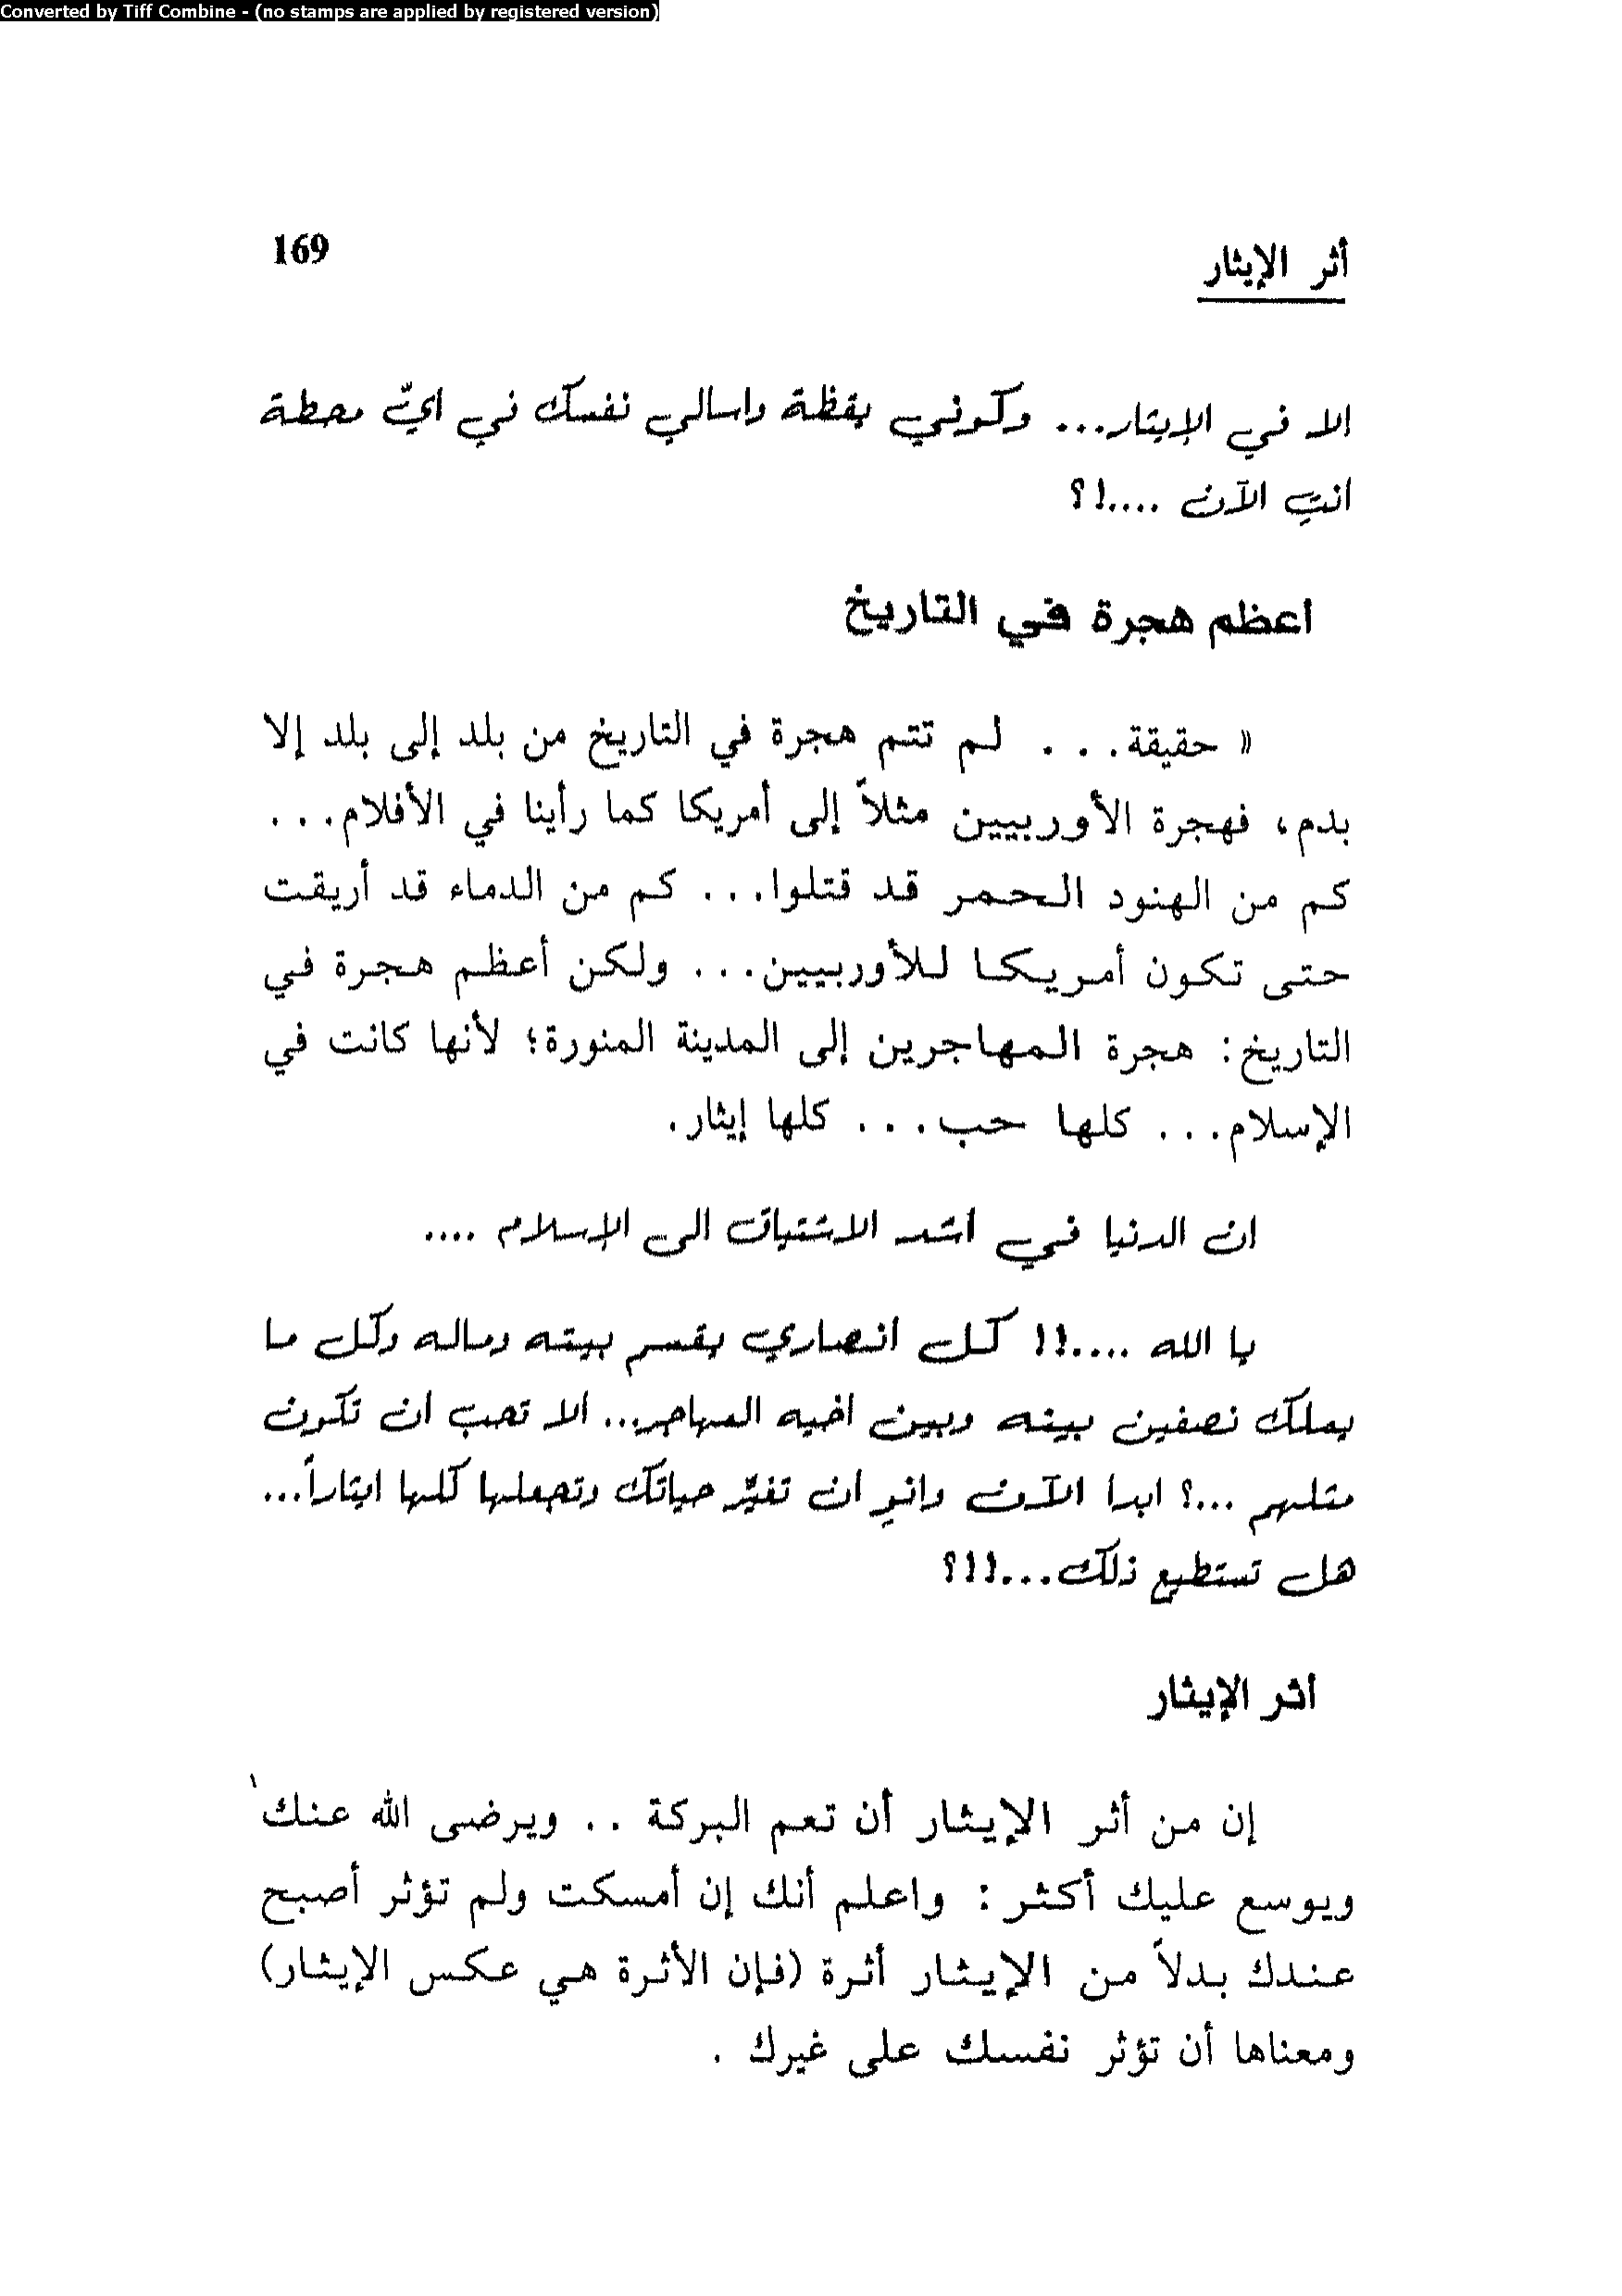 Converted by Tiff Combine - (no stamps are applied by registered version)
أثر الإيثار 169
الا في الإيثار... وكوني يقظة واسالي نفسك في ايّ محطة
انتِ الآن ....!؟
اعظم هجرة في التاريخ
« حقيقة... لم تتم هجرة في التاريخ من بلد إلى بلد إلا
بدم، فهجرة الأوربيين مثلاً إلى أمريكا كما رأينا في الأفلام...
كم من الهنود الحمر قد قتلوا... كم من الدماء قد أريقت
حتى تكون أمريكا للأوربيين... ولكن أعظم هجرة في
التاريخ: هجرة المهاجرين إلى المدينة المنورة؛ لأنها كانت في
الإسلام... كلها حب... كلها إيثار.
ان الدنيا في اشد الاشتياق الى الإسلام ....
يا الله ....!! كل انصاري يقسم بيته وماله وكل ما
يملك نصفين بينه وبين اخيه المهاجر... الا تحب ان تكون
مثلهم ...؟ ابدا الآن وانوِ ان تغيّر حياتك وتجعلها كلها ايثاراً...
هل تستطيع ذلك...!!؟
اثر الإيثار
إن من أثر الإيثار أن تعم البركة .. ويرضى الله عنك
ويوسع عليك أكثر : واعلم أنك إن أمسكت ولم تؤثر أصبح
عندك بدلاً من الإيثار أثرة (فإن الأثرة هي عكس الإيثار)
ومعناها أن تؤثر نفسك على غيرك .